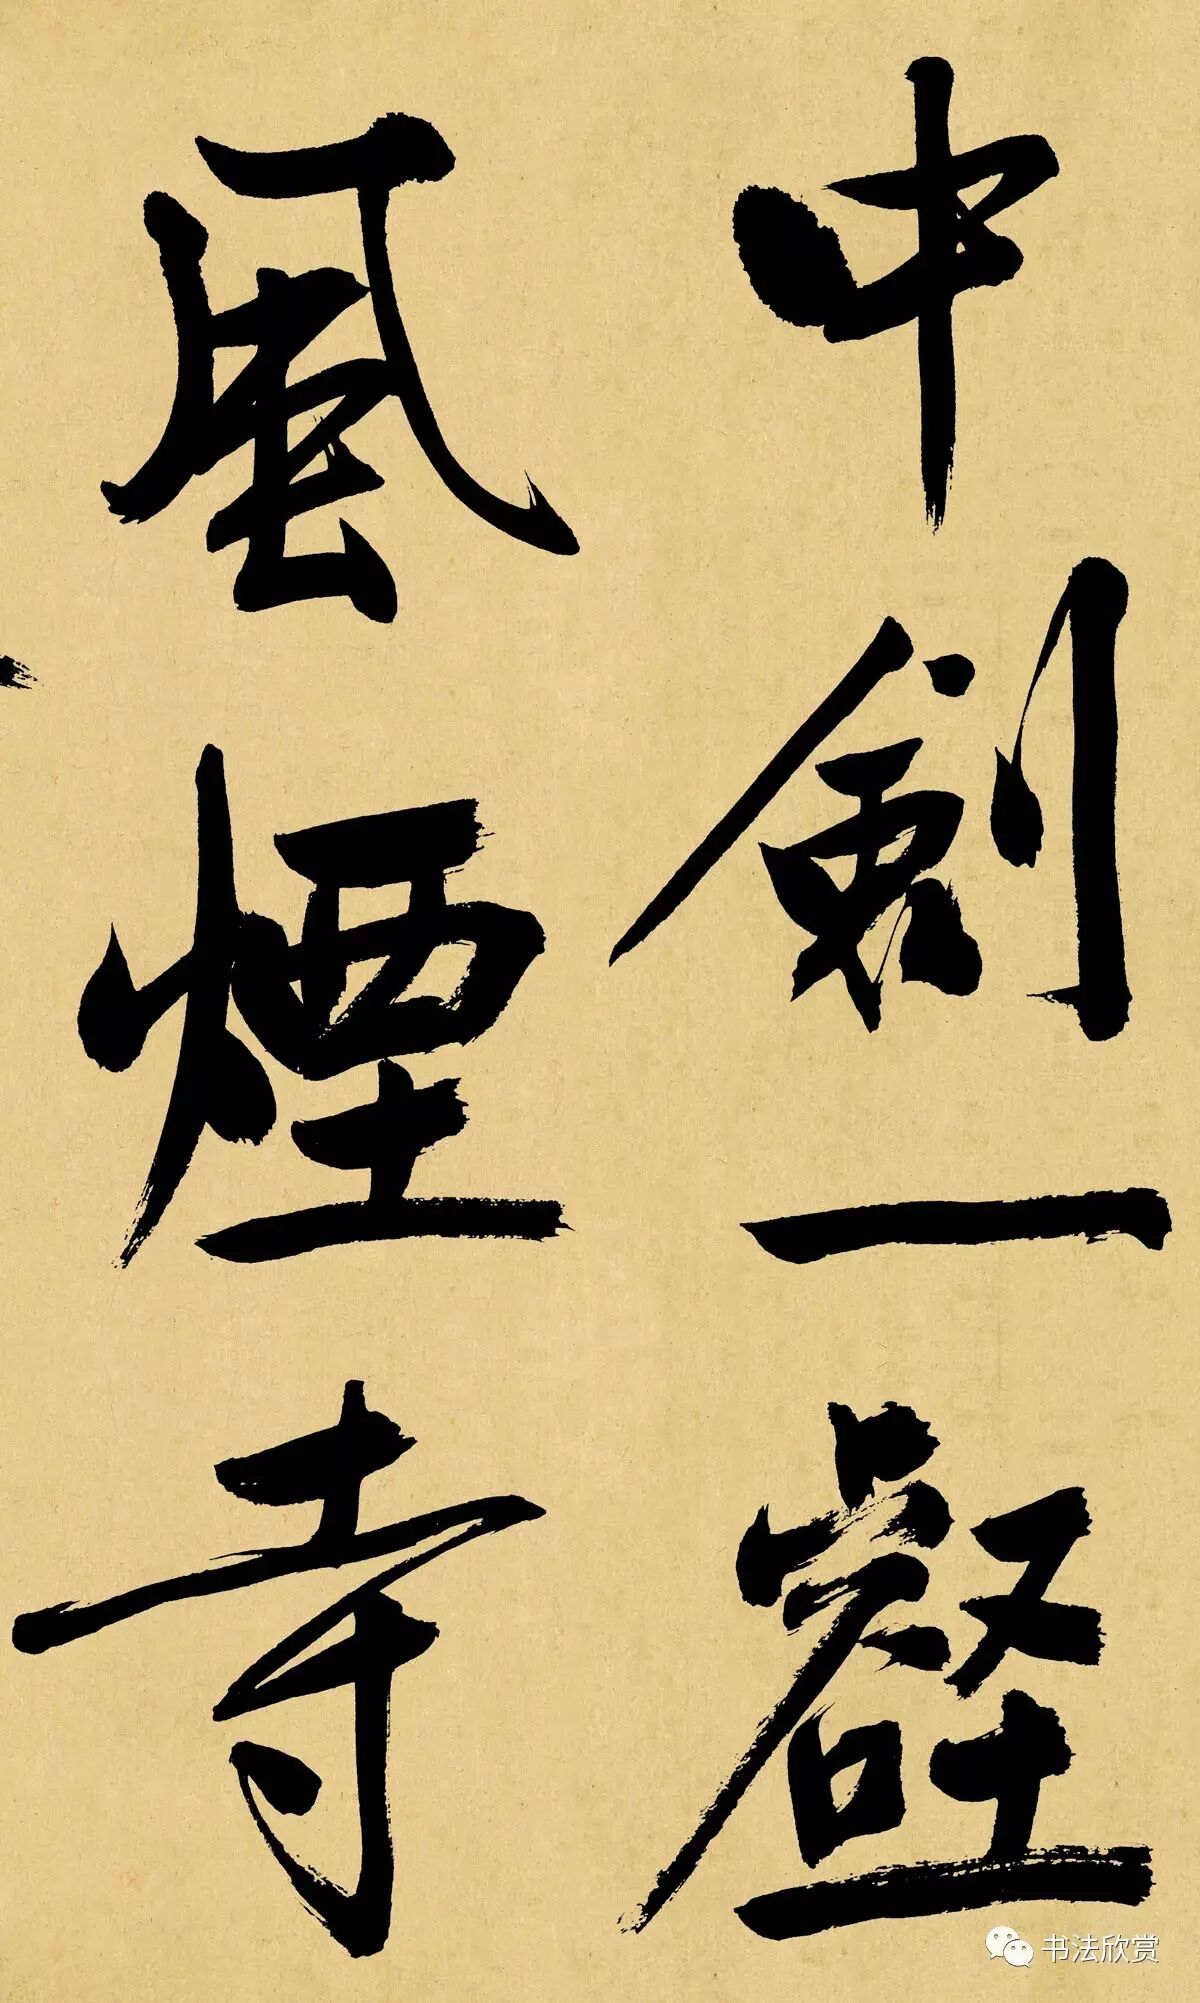 中劍一壑
風煙寺
书法欣赏